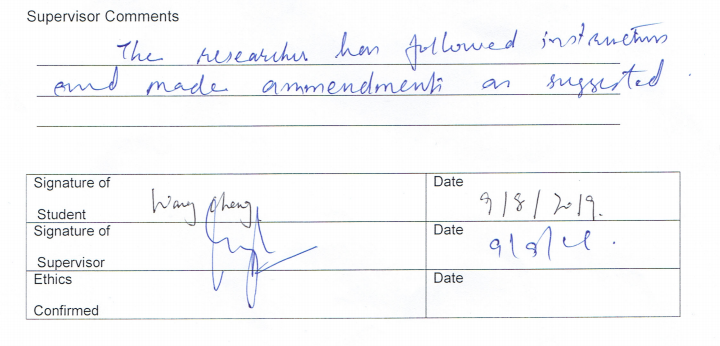 Supervisor Comments
The researcher has followed instructions
and made ammendments as suggested
Signature of Date
Student Wang Cheng 9/8/2019.
Signature of Date
Supervisor
Ethics Date
Confirmed